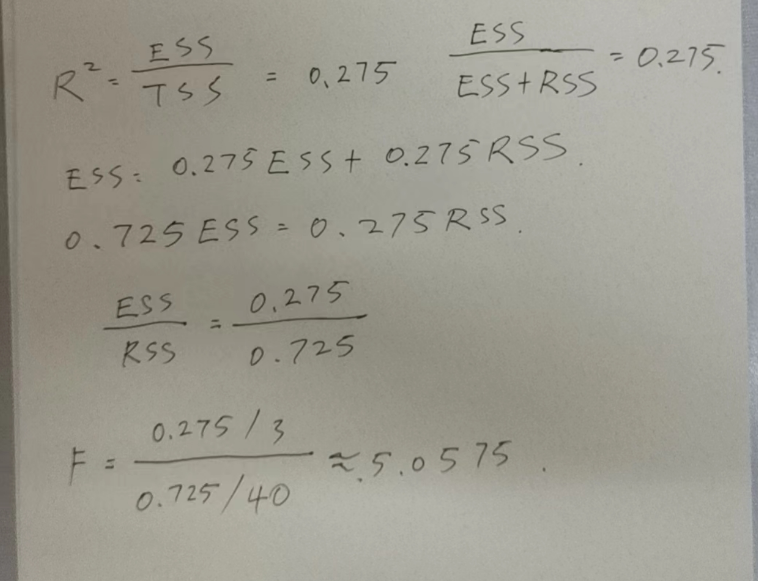 R² = ESS / TSS = 0.275   ESS / ESS + RSS = 0.275.
ESS = 0.275 ESS + 0.275 RSS.
0.725 ESS = 0.275 RSS.
ESS / RSS = 0.275 / 0.725
F = 0.275 / 3 / 0.725 / 40 ≈ 5.0575.